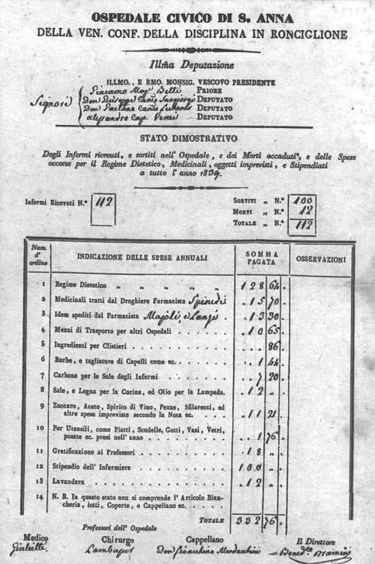 OSPEDALE CIVICO DI S. ANNA
DELLA VEN. CONF. DELLA DISCIPLINA IN RONCIGLIONE
Illma Deputazione
ILLMO. E RMO. MONSIG. VESCOVO PRESIDENTE
Signori
PRIORE
DEPUTATO
DEPUTATO
DEPUTATO
STATO DIMOSTRATIVO
Degli Infermi ricevuti, e sortiti nell' Ospedale, e dei Morti accaduti, e delle Spese
occorse per il Regime Dietetico, Medicinali, oggetti imprevisti, e Stipendiati
a tutto l' anno 1834.
Infermi Ricevuti N.° 112
SORTITI „ N.° 100
MORTI „ N.° 12
TOTALE „ N.° 112
Num. d' ordine INDICAZIONE DELLE SPESE ANNUALI SOMMA PAGATA OSSERVAZIONI
1 Regime Dietetico „ „ „ „ „ 128 64
2 Medicinali tratti dal Droghiere Farmacista 15 70
3 Idem spediti dal Farmacista 13 30
4 Mezzi di Trasporto per altri Ospedali 10 65
5 Ingredienti per Clistieri 86
6 Barbe, e tagliatura di Capelli come ec. 1 44
7 Carbone per le Sale degli Infermi 7 20
8 Sale, e Legna per la Cucina, ed Olio per le Lampade. 12
9 Zuccaro, Aceto, Spirito di Vino, Pezze, Filaretti, ed
altre spese imprevise secondo la Nota ec. 11 21
10 Per Utensili, come Piatti, Scudelle, Cotti, Vasi, Vetri,
posate ec. presi nell' anno 1 76
11 Gratificazione ai Professori 18
12 Stipendio dell' Infermiere 100
13 Lavandara 12
14 N. B. In questo stato non si comprende l' Articolo Biancheria, letti, Coperte, o Cappellano ec.
TOTALE 332 76
Professori dell' Ospedale
Medico Chirurgo Cappellano Il Direttore